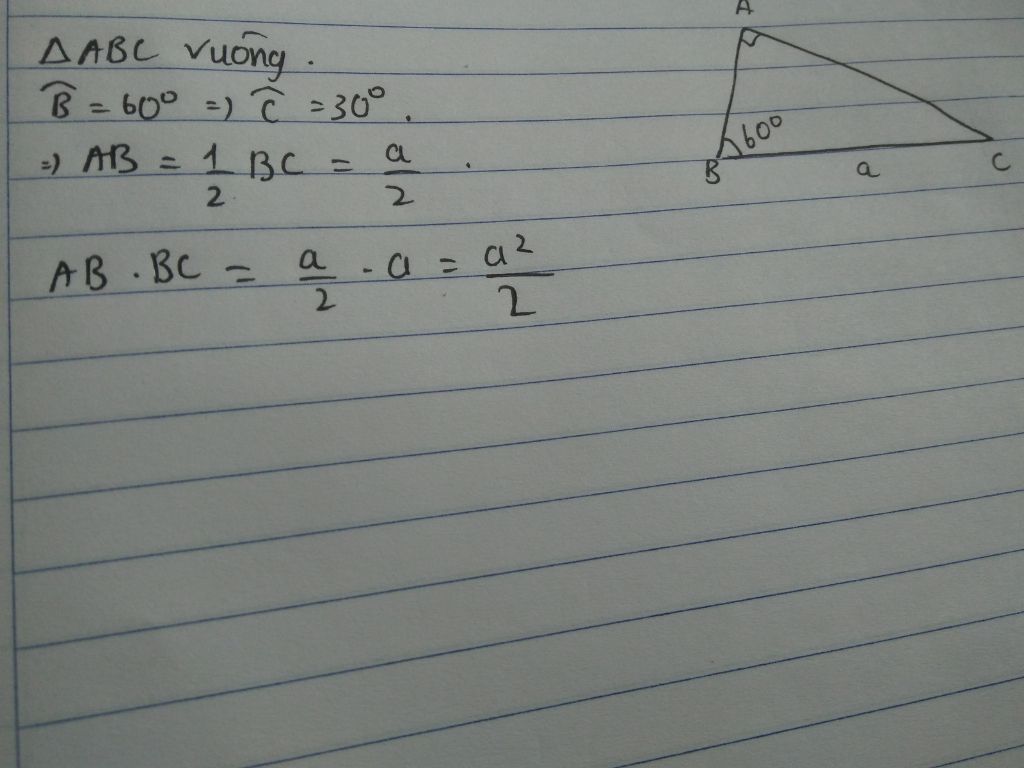 Δ ABC vuông.
B̂ = 60⁰ => Ĉ = 30⁰.
=> AB = 1/2 BC = a/2.
AB . BC = a/2 . a = a²/2
A
60⁰
B
a
C